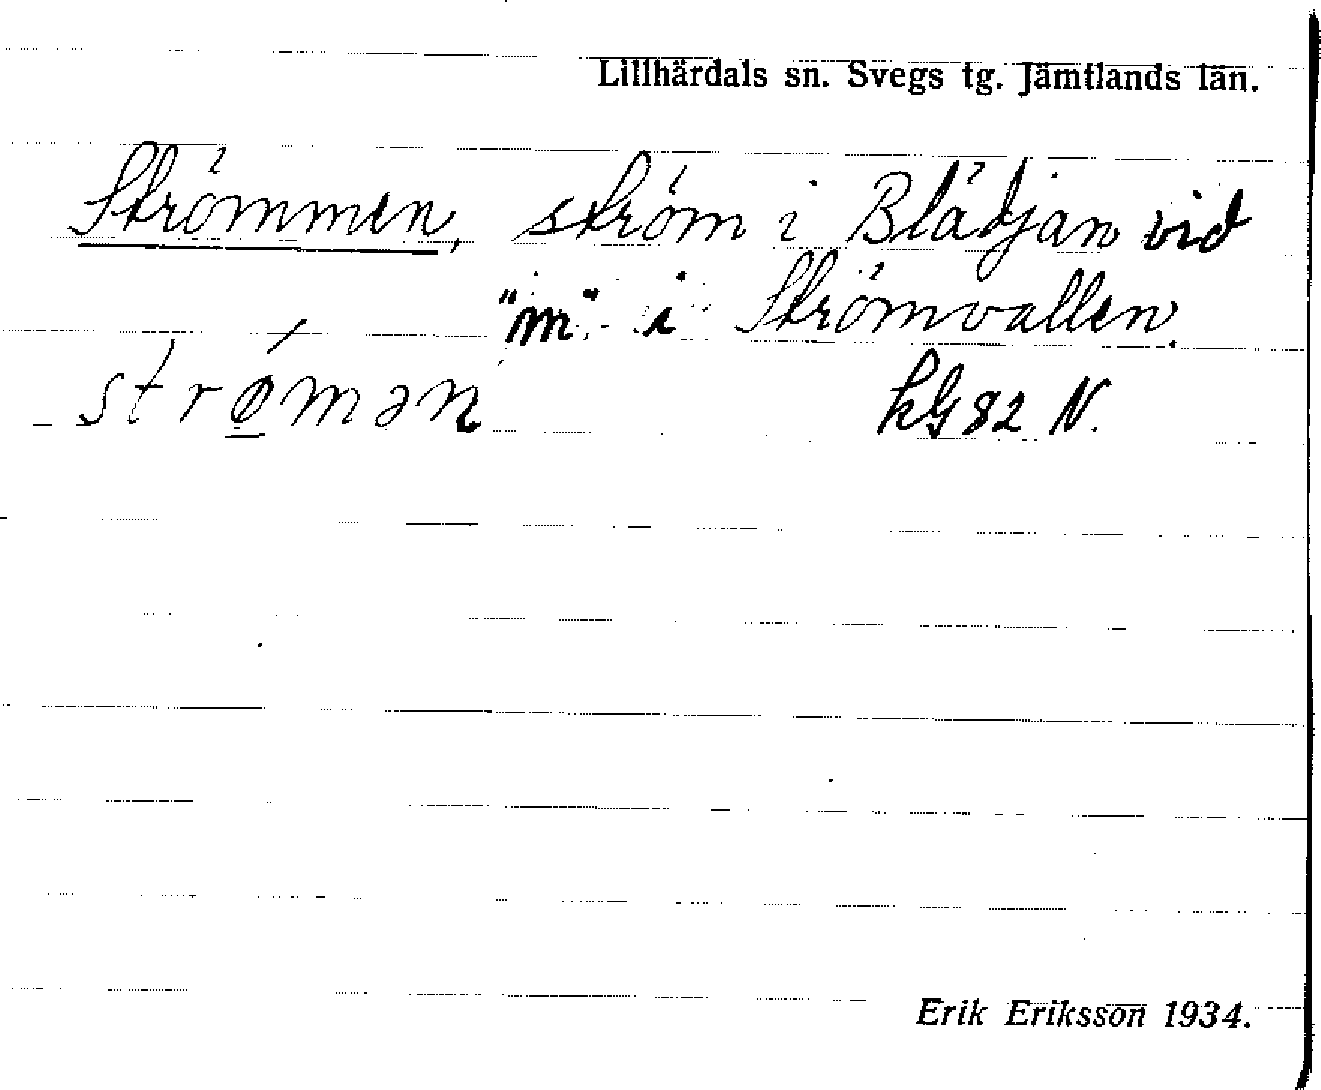 Lillhärdals sn. Svegs tg. Jämtlands län.
Strömmen, ström i Blädjan vid
"m" i Strömvallen.
strømən kG 82 N.
Erik Eriksson 1934.